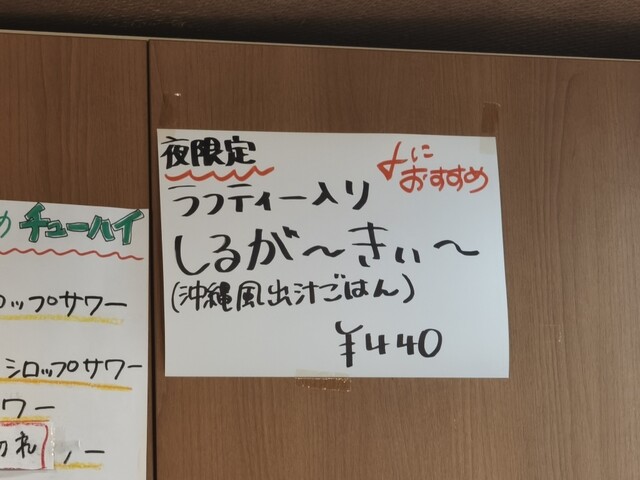 夜限定
〆に
おすすめ
ラフティー入り
しるが〜きぃ〜
(沖縄風出汁ごはん)
¥440
め チューハイ
ロップサワー
シロップサワー
ワー
切れ
ー